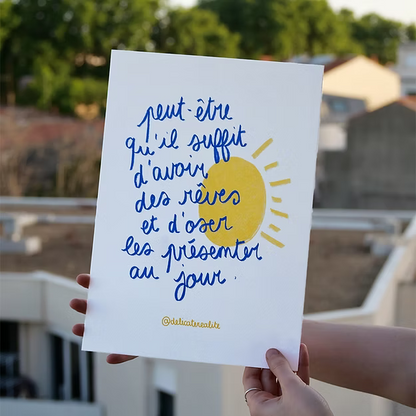 peut-être
qu'il suffit
d'avoir
des rêves
et d'oser
les présenter
au jour.
@delicaterealite